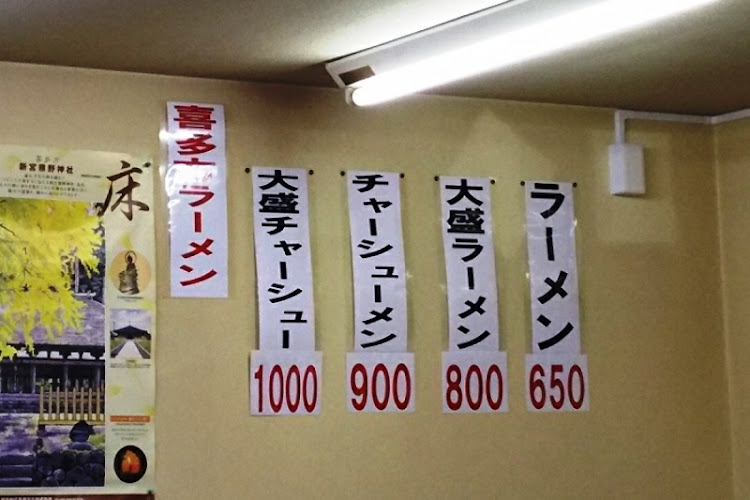 喜多方ラーメン
ラーメン
650
大盛ラーメン
800
チャーシューメン
900
大盛チャーシュー
1000
新宮熊野神社
床